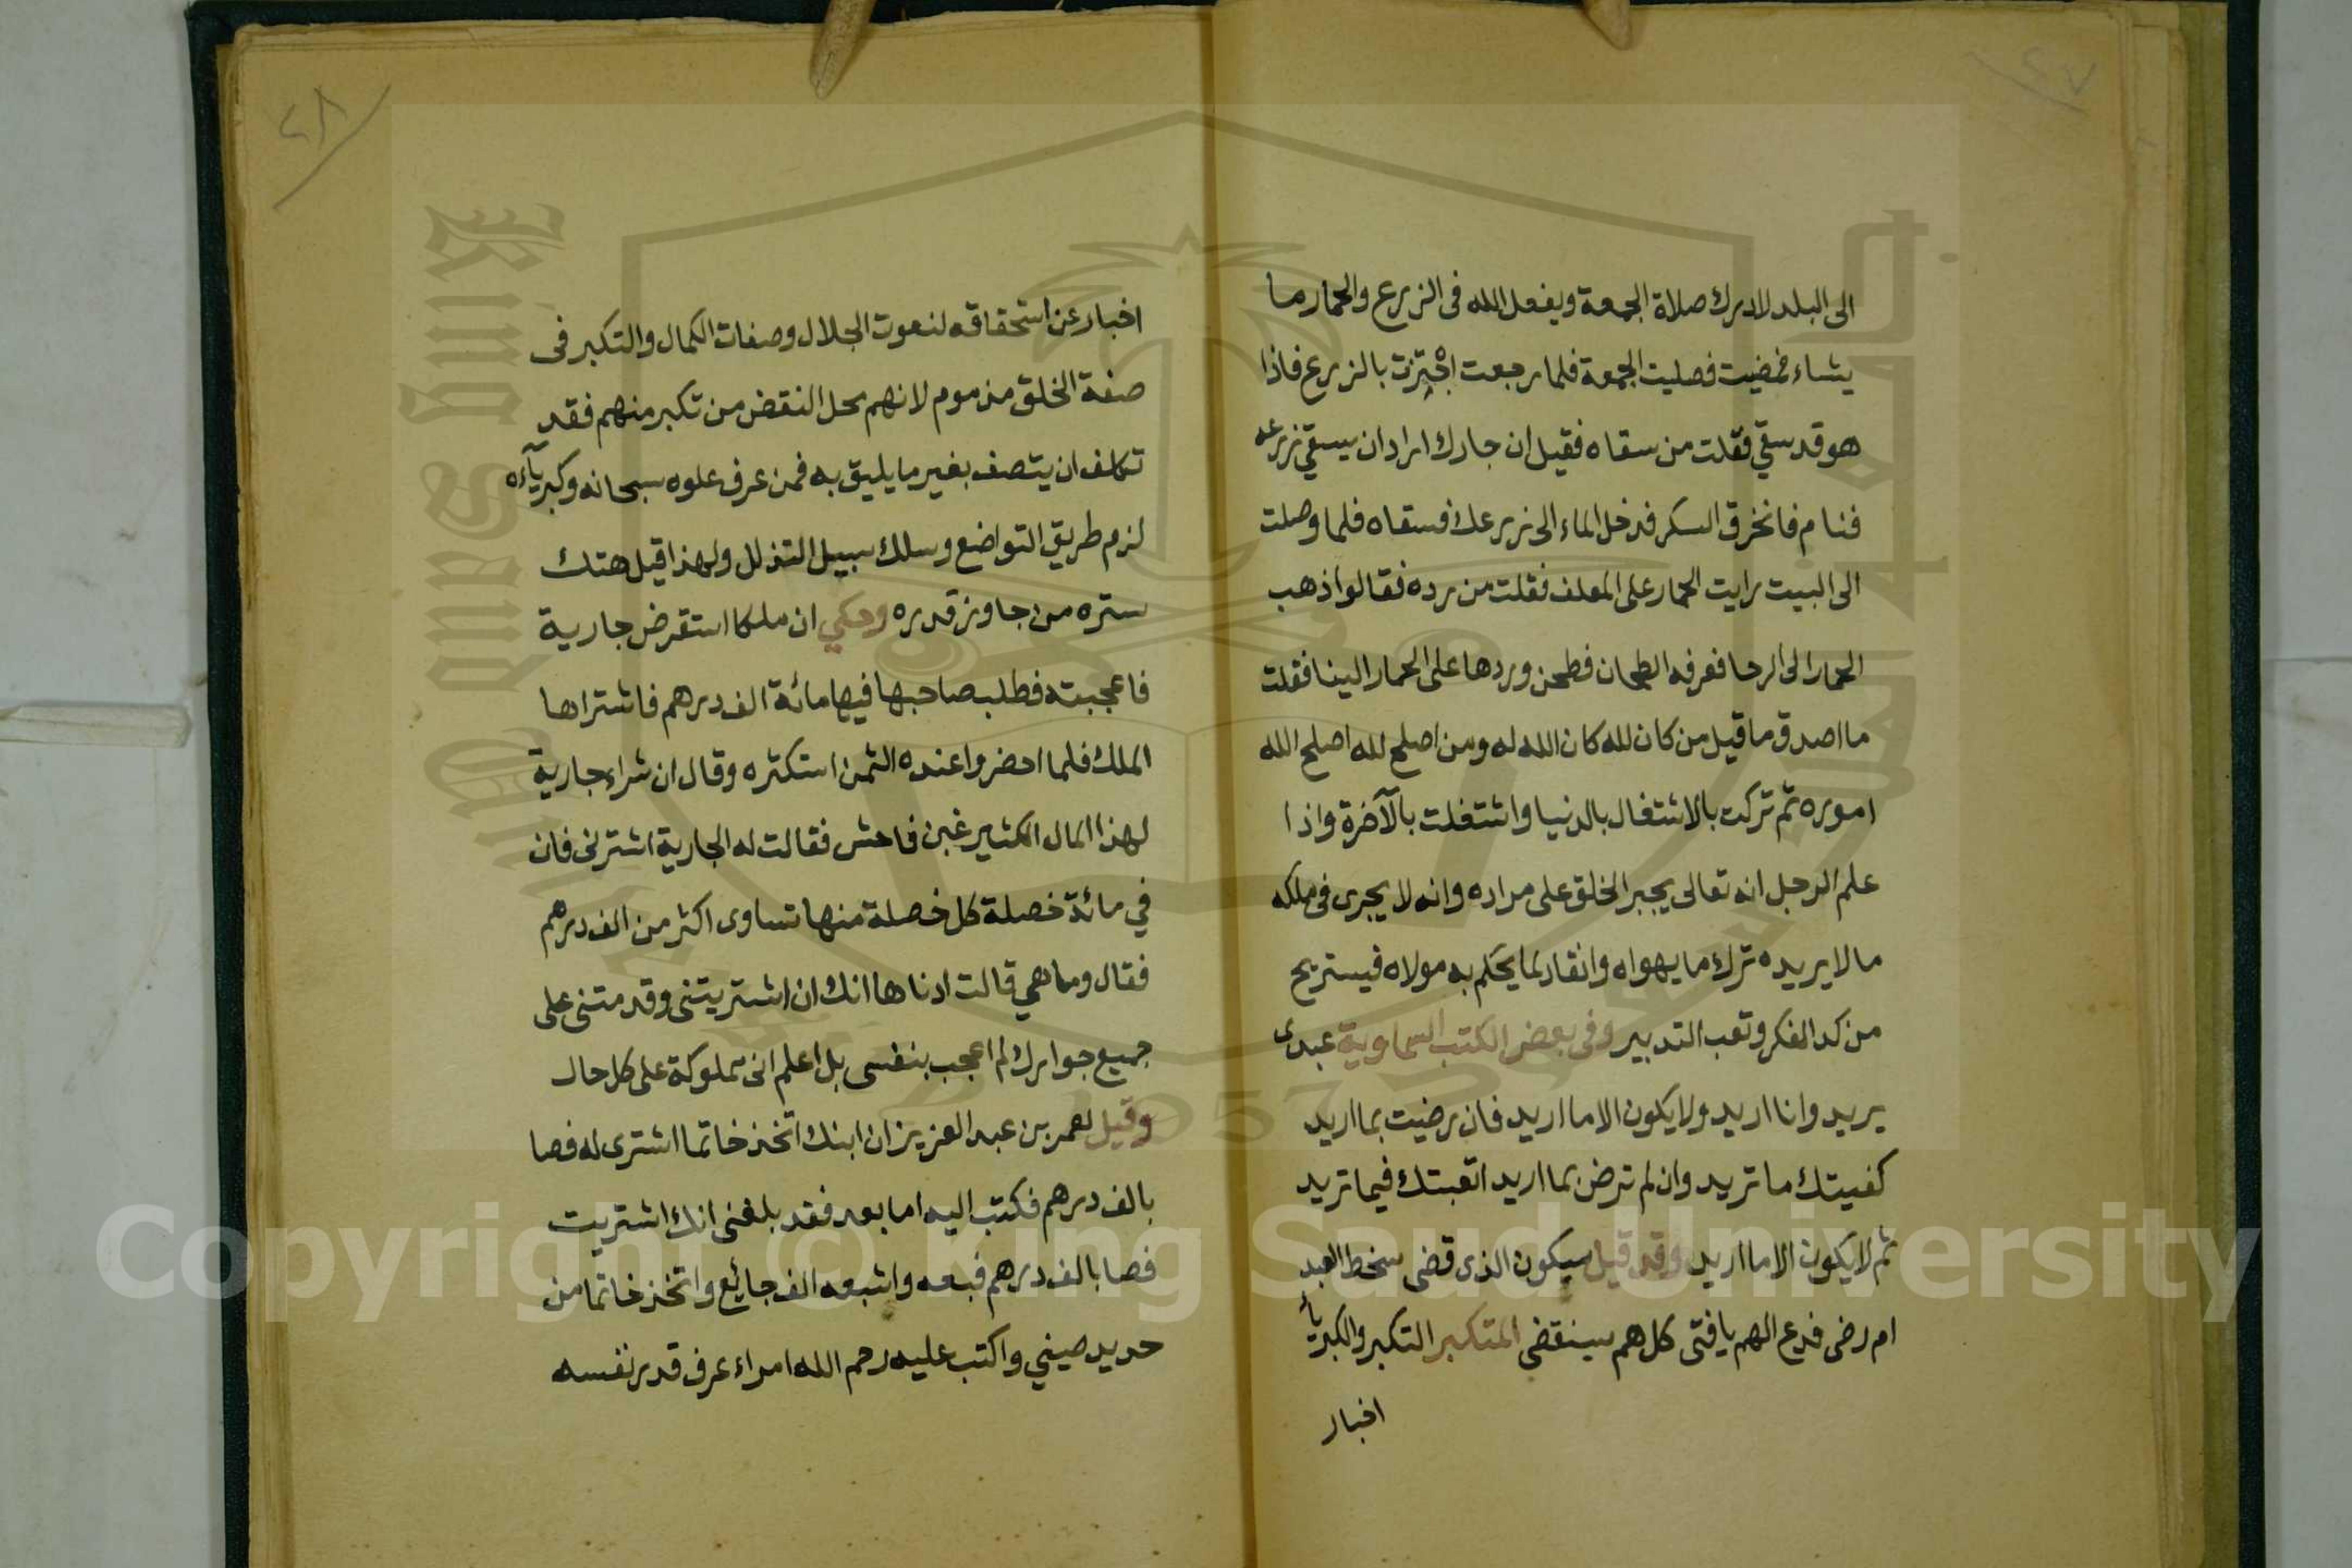 ٤٧
الى البلد لادرك صلاة الجمعة ويفعل الله فى الزرع والحمار ما
يشاء فمضيت فصليت الجمعة فلما رجعت اجتزت بالزرع فاذا
هو قد سقي فقلت من سقاه فقيل ان جارك اراد ان يسقي زرعه
فنام فانخرق السكر فدخل الماء الى زرعك فسقاه فلما وصلت
الى البيت رايت الحمار على المعلف فقلت من رده فقالوا ذهب
الحمار الى الرحا فعرفه الطحان فطحن وردها على الحمار الينا فقلت
ما اصدق ما قيل من كان لله كان الله له ومن اصلح لله اصلح الله
اموره ثم تركت بالاشتغال بالدنيا واشتغلت بالآخرة واذا
علم الرجل انه تعالى يجبر الخلق على مراده وانه لا يجرى فى ملكه
ما لا يريده ترك ما يهواه وانقاد لما يحكم به مولاه فيستريح
من كد الفكر وتعب التدبير وفى بعض الكتب السماوية عبدى
يريد وانا اريد ولا يكون الا ما اريد فان رضيت بما اريد
كفيتك ما تريد وان لم ترض بما اريد اتعبتك فيما تريد
ثم لا يكون الا ما اريد وقد قيل سيكون الذى قضى سخط العبد
ام رضى فدع الهم يا فتى كل هم سينقضى المتكبر التكبر والكبرياء
اخبار
٤٨
اخبار عن استحقاقه لنعوت الجلال وصفات الكمال والتكبر فى
صفة الخلق مذموم لانهم محل النقض من تكبر منهم فقد
تكلف ان يتصف بغير ما يليق به فمن عرف علوه سبحانه وكبريآءه
لزم طريق التواضع وسلك سبيل التذلل ولهذا قيل هتك
ستره من جاوز قدره وحكي ان ملكا استقرض جارية
فاعجبته فطلب صاحبها فيها مائة الف درهم فاشتراها
الملك فلما احضروا عنده الثمن استكثره وقال ان شراء جارية
لهذا المال الكثير غبن فاحش فقالت له الجارية اشترنى فان
في مائة خصلة كل خصلة منها تساوى اكثر من الف درهم
فقال وما هي قالت ادناها انك ان اشتريتنى وقدمتنى على
جميع جوارك لم اعجب بنفسى بل اعلم انى مملوكة على كل حال
وقيل لعمر بن عبد العزيز ان ابنك اتخذ خاتما اشترى له فصا
بالف درهم فكتب اليه اما بعد فقد بلغنى انك اشتريت
فصا بالف درهم فبعه واشبعه الف جائع واتخذ خاتما من
حديد صيني واكتب عليه رحم الله امراء عرف قدر نفسه
Copyright © King Saud University
King Saud University
1957